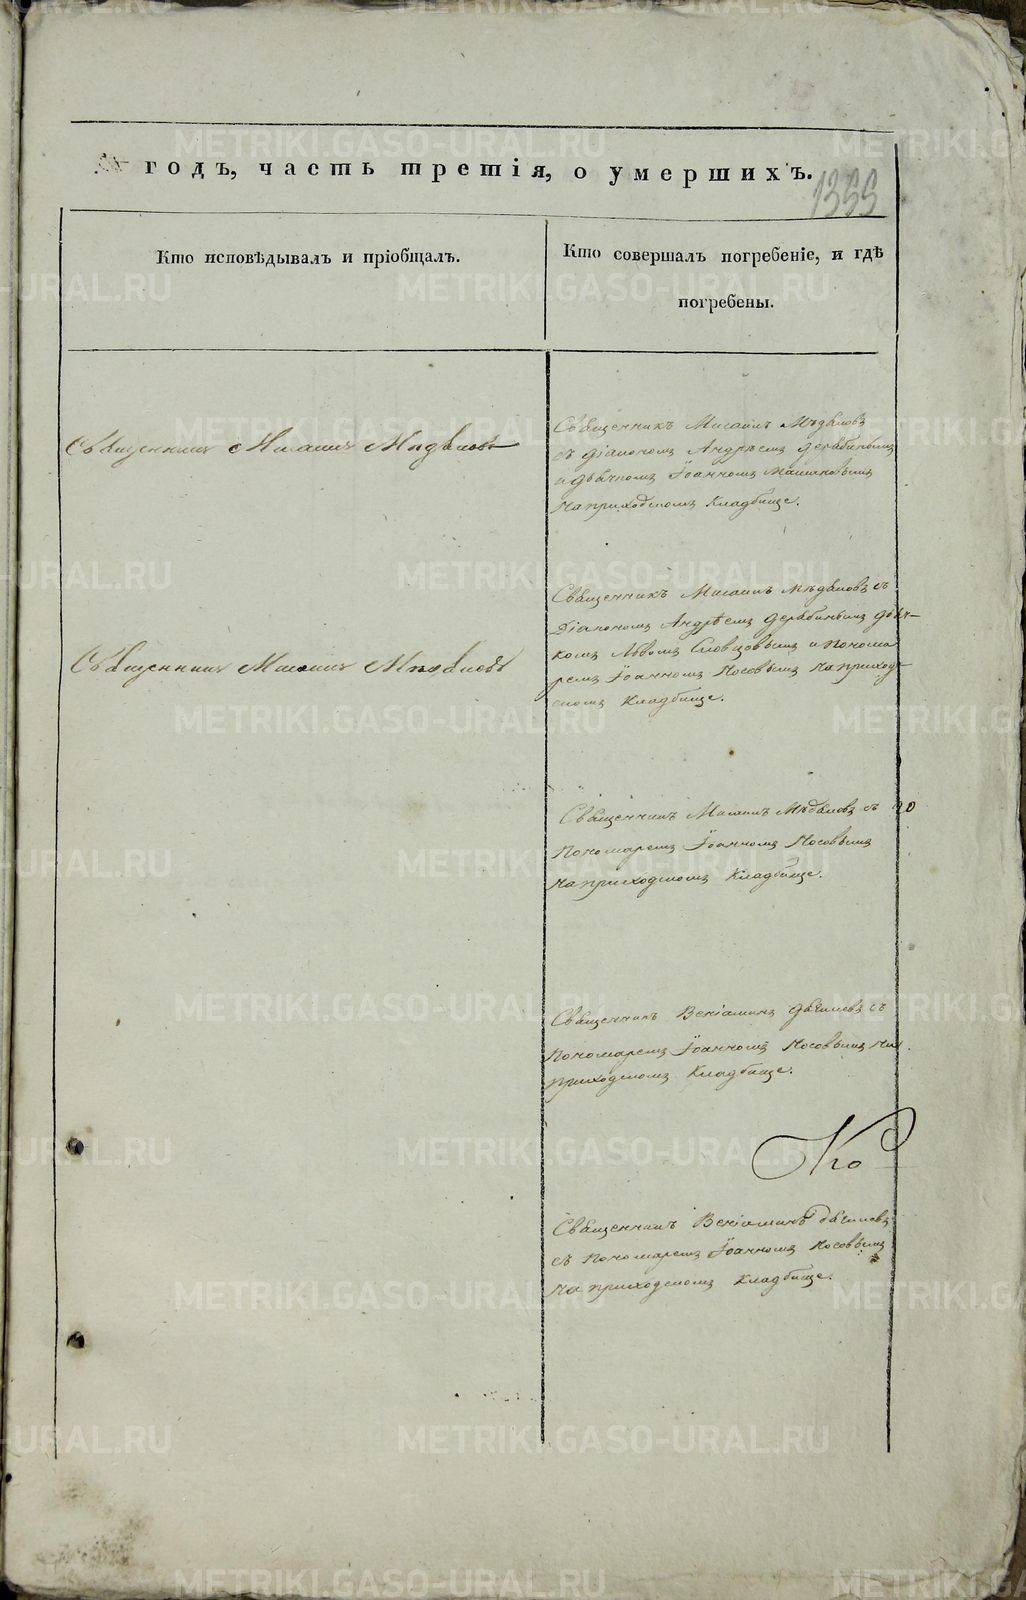 годъ, часть третія, о умершихъ.
1355
Кто исповѣдывалъ и пріобщалъ.
Кто совершалъ погребеніе, и гдѣ
погребены.
Священникъ Мисаилъ
Священникъ Мисаилъ Мѣдѣловъ
съ діакономъ Андреемъ Дерябинымъ
и дьячкомъ Іоанномъ
на приходскомъ кладбище.
Священникъ Мисаилъ
Священникъ Мисаилъ Мѣдѣловъ съ
Діакономъ Андреемъ Дерябинымъ дьяч-
комъ Львомъ Словцовымъ и понома
ремъ Іоанномъ Носовымъ на приход
скомъ кладбище.
Священникъ Мисаилъ Мѣдѣловъ съ
пономаремъ Іоанномъ Носовымъ
на приходскомъ кладбище.
Священникъ Веніаминъ съ
пономаремъ Іоанномъ Носовымъ на
приходскомъ кладбище.
Священникъ Веніаминъ
съ пономаремъ Іоанномъ Носовымъ
на приходскомъ кладбище.
METRIKI.GASO-URAL.RU